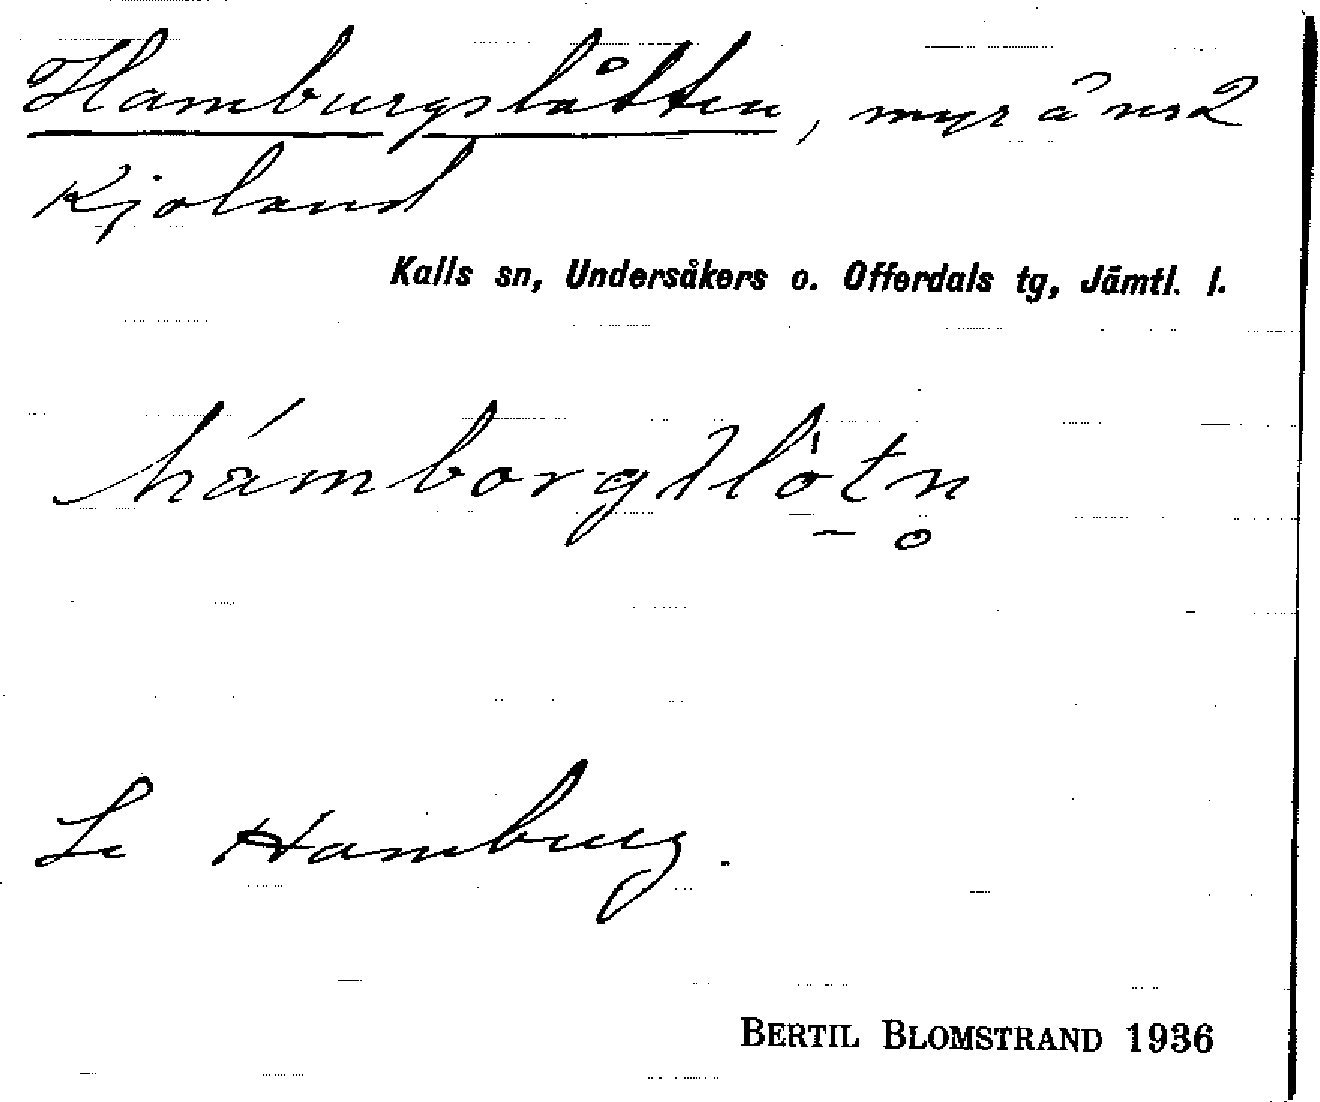 Hamburgslåtten, myr å nr 2
Kjoland
Kalls sn, Undersåkers o. Offerdals tg, Jämtl. l.
Se Hamburg.
BERTIL BLOMSTRAND 1936